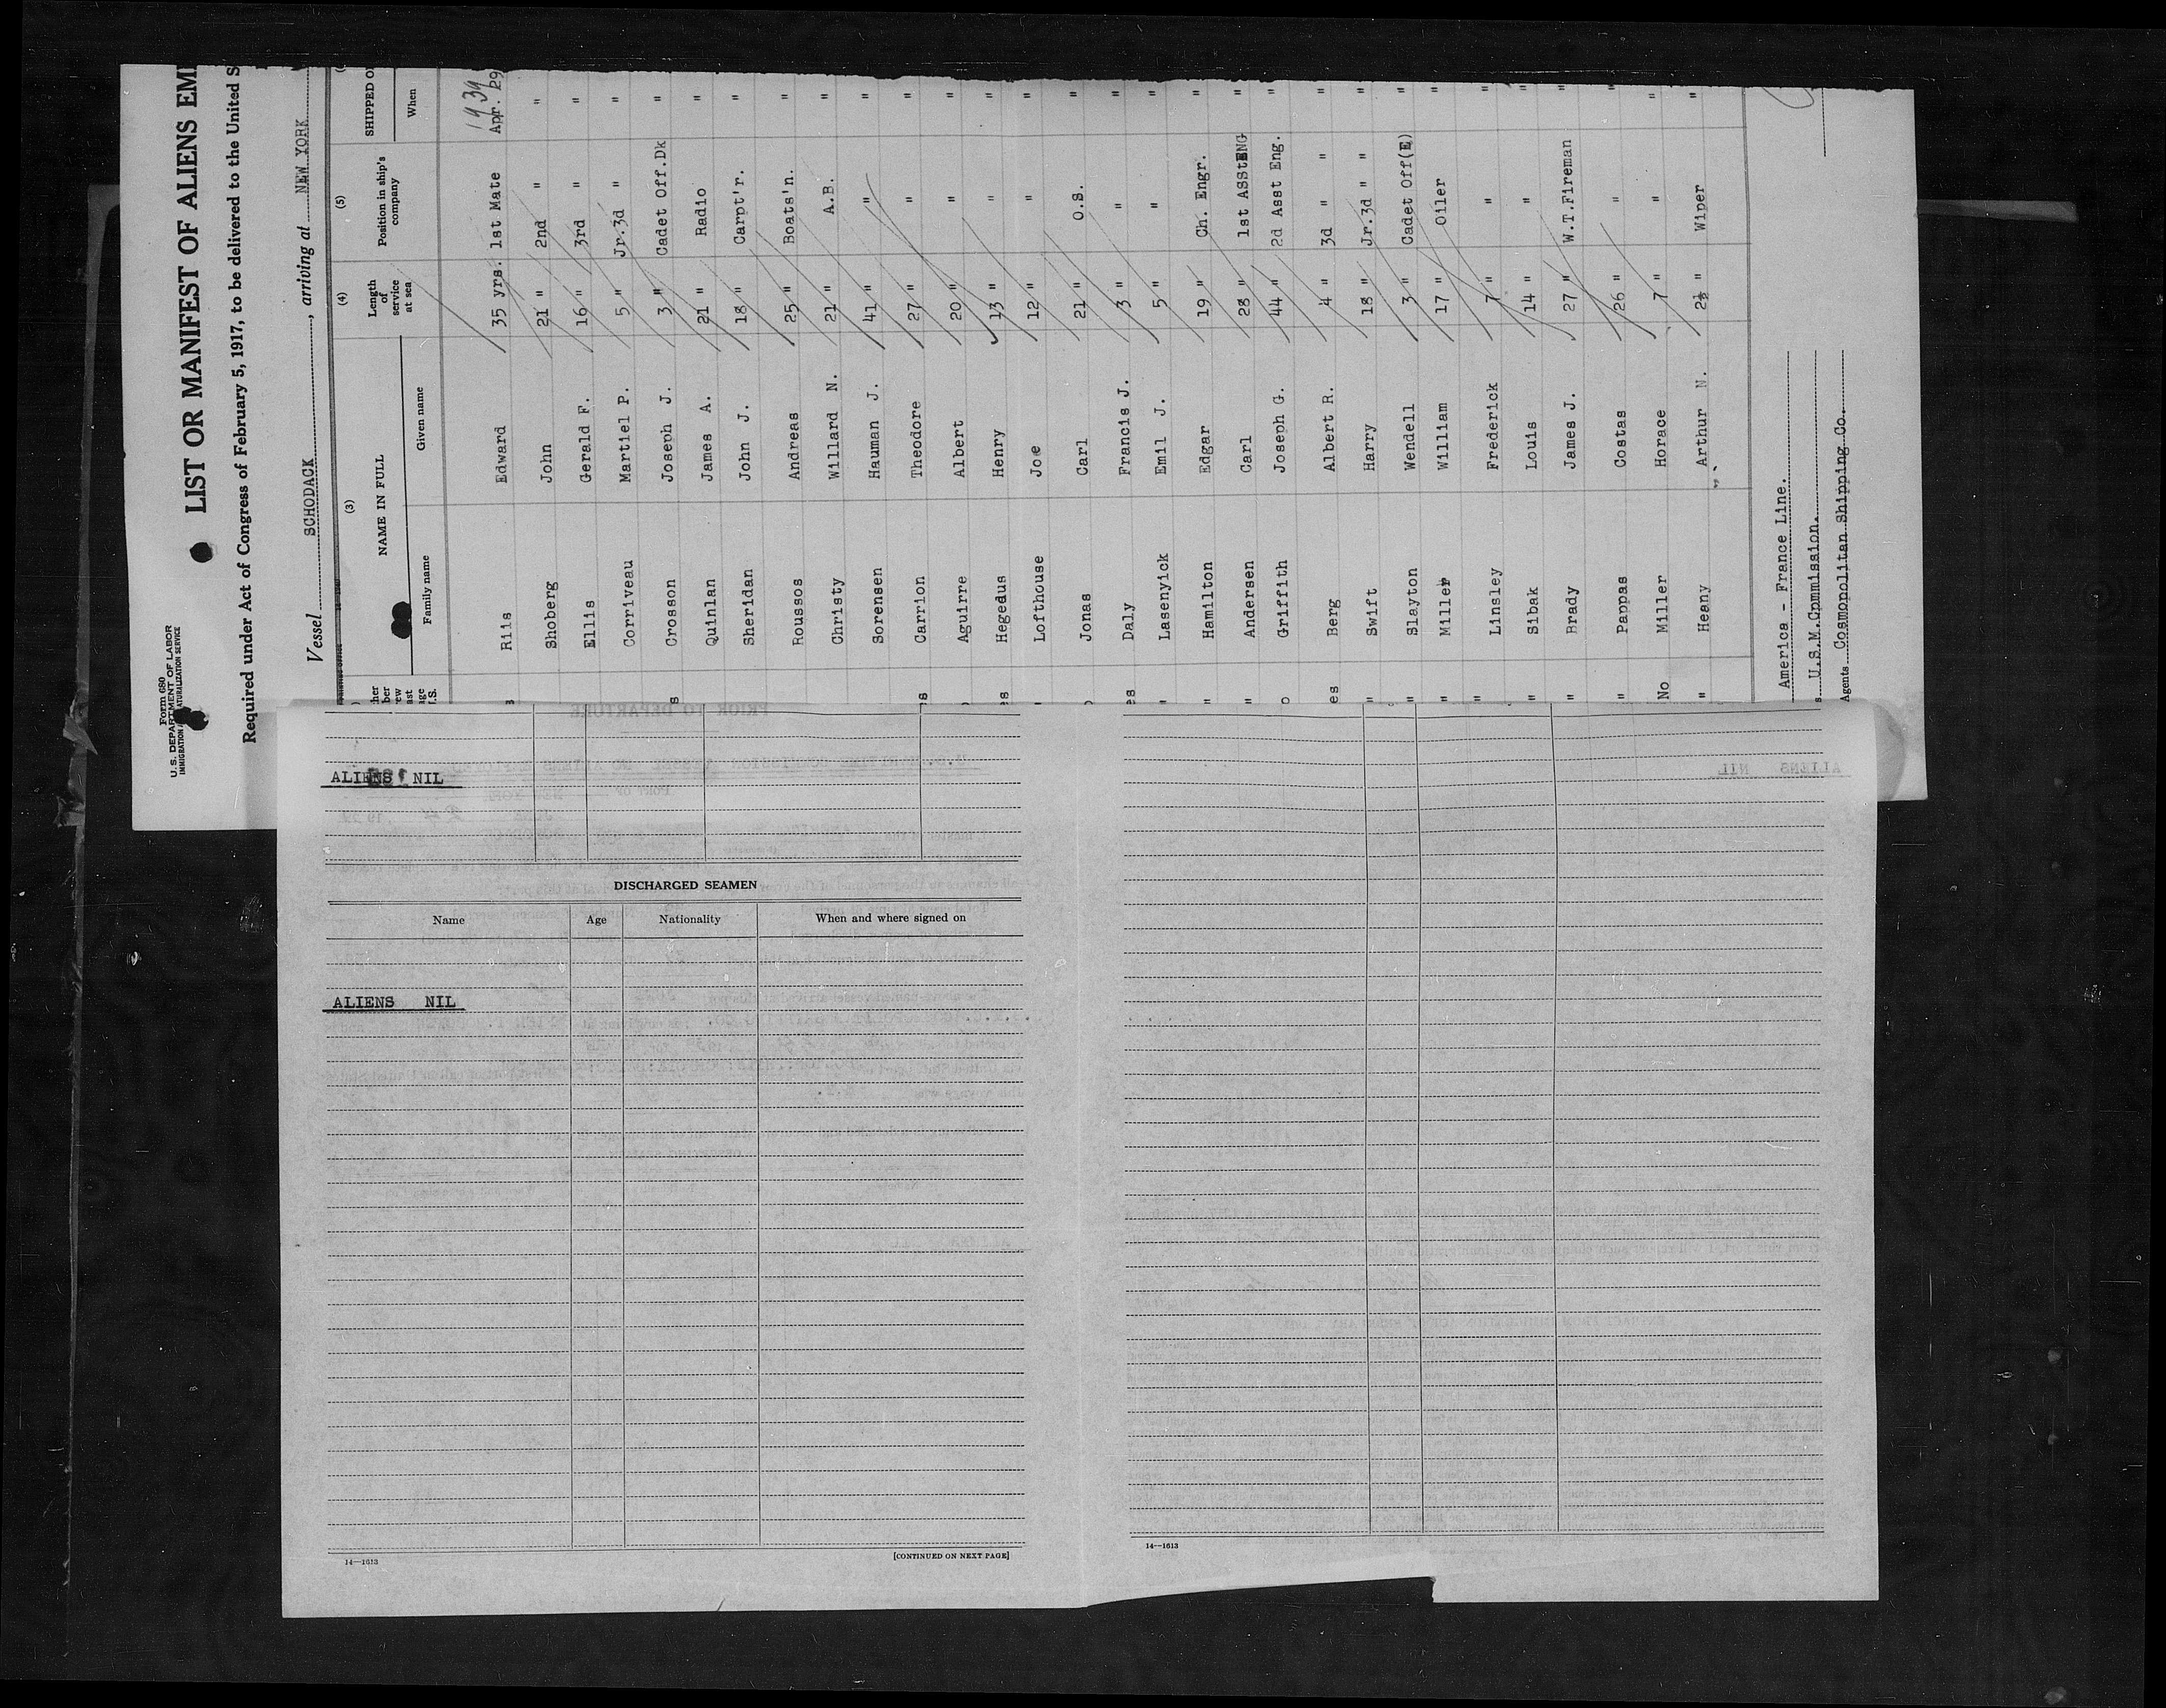 Form 680
U. S. DEPARTMENT OF LABOR
IMMIGRATION NATURALIZATION SERVICE
LIST OR MANIFEST OF ALIENS EM
Required under Act of Congress of February 5, 1917, to be delivered to the United S
Vessel SCHODACK, arriving at NEW YORK
(3) (4) (5)
NAME IN FULL Length of service at sea Position in ship's company SHIPPED O
Family name Given name When
1939
Riis Edward 35 yrs. 1st Mate Apr. 29
Shoberg John 21 " 2nd " "
Ellis Gerald F. 16 " 3rd " "
Corriveau Martiel P. 5 " Jr.3d " "
Crosson Joseph J. 3 " Cadet Off.Dk "
Quinlan James A. 21 " Radio "
Sheridan John J. 18 " Carpt'r. "
Roussos Andreas 25 " Boats'n. "
Christy Willard N. 21 " A.B. "
Sorensen Hauman J. 41 " " "
Carrion Theodore 27 " " "
Aguirre Albert 20 " " "
Hegedus Henry 13 " " "
Lofthouse Joe 12 " " "
Jonas Carl 21 " O.S. "
Daly Francis J. 3 " " "
Lasenyick Emil J. 5 " " "
Hamilton Edgar 19 " Ch. Engr. "
Andersen Carl 28 " 1st ASStENG "
Griffith Joseph G. 44 " 2d Asst Eng. "
Berg Albert R. 4 " 3d " " "
Swift Harry 18 " Jr.3d " " "
Slayton Wendell 3 " Cadet Off(E) "
Miller William 17 " Oiler "
Linsley Frederick 7 " " "
Sibak Louis 14 " " "
Brady James J. 27 " W.T.Fireman "
Pappas Costas 26 " " "
No Miller Horace 7 " " "
" Heany Arthur N. 2½ " Wiper "
America - France Line.
U.S.M.Commission.
Agents Cosmopolitan Shipping Co.
ALIENS NIL
DISCHARGED SEAMEN
Name Age Nationality When and where signed on
ALIENS NIL
14—1613 [CONTINUED ON NEXT PAGE]
14—1613